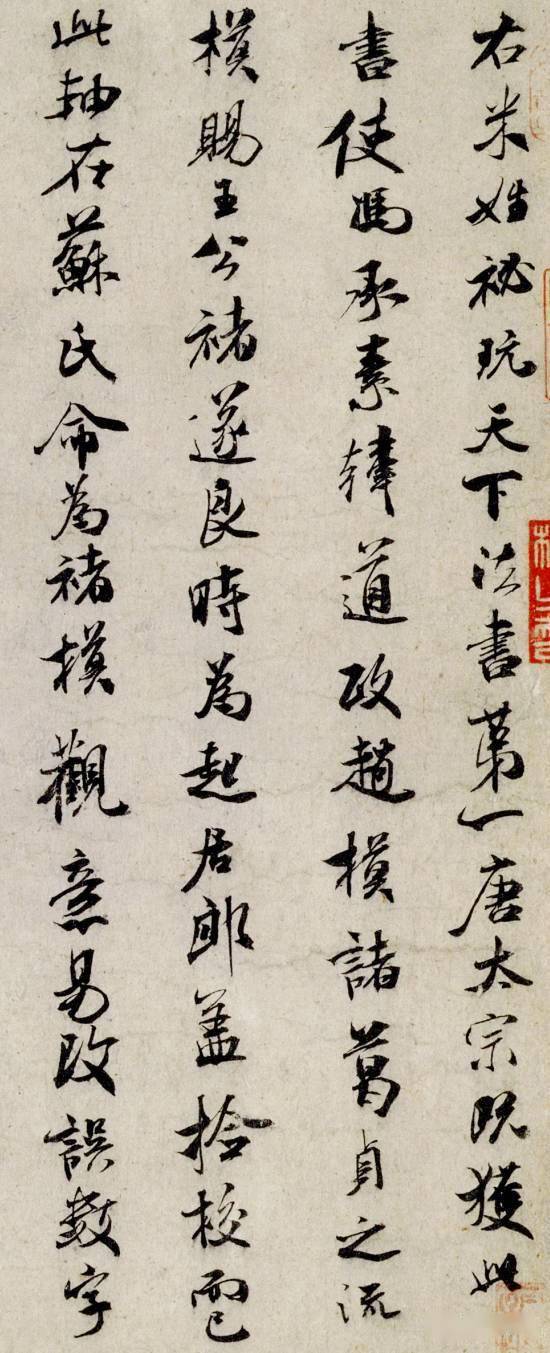 右米姓祕玩天下法書苐一唐太宗既獲此
書使馮承素韓道政趙模諸葛貞之流
模賜王公褚遂良時為起居郎盖撿校而已
此軸在蘇氏命為褚模觀意易改誤數字